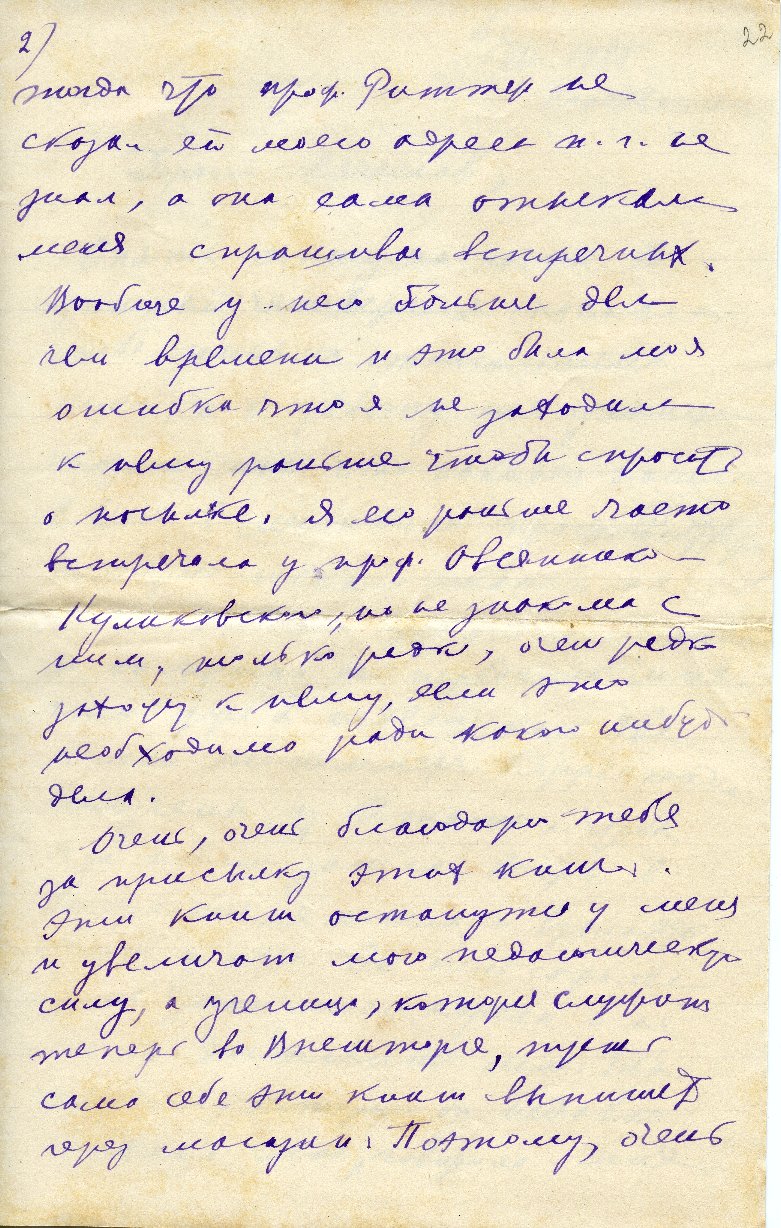 2)
22
тогда что проф. Риттер не
сказал ей моего адреса п. ч. не
знал, а она сама отыскала
меня спрашивая встречных.
Вообще у него больше дел
чем времени и это была моя
ошибка что я не заходила
к нему раньше чтобы спросить
о посылке. Я его раньше часто
встречала у проф. Овсянико-
Куликовского, но не знакома с
ним, только редко, очень редко
захожу к нему, если это
необходимо ради какого нибудь
дела.
Очень, очень благодарю тебя
за присылку этих книг.
Эти книги останутся у меня
и увеличат мою педагогическую
силу, а ученица, которая служит
теперь во Внешторге, пусть
сама себе эти книги выпишет
через магазин. Поэтому, очень